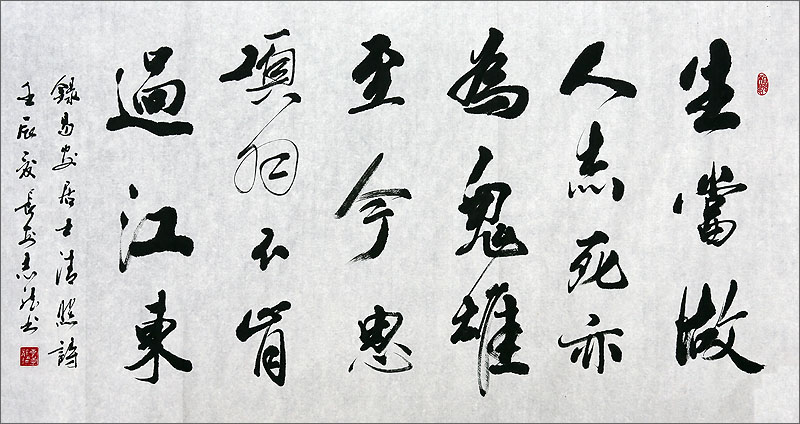 生當做
人杰死亦
為鬼雄
至今思
項羽不肯
過江東
錄易安居士清照詩
壬辰夏長安志书